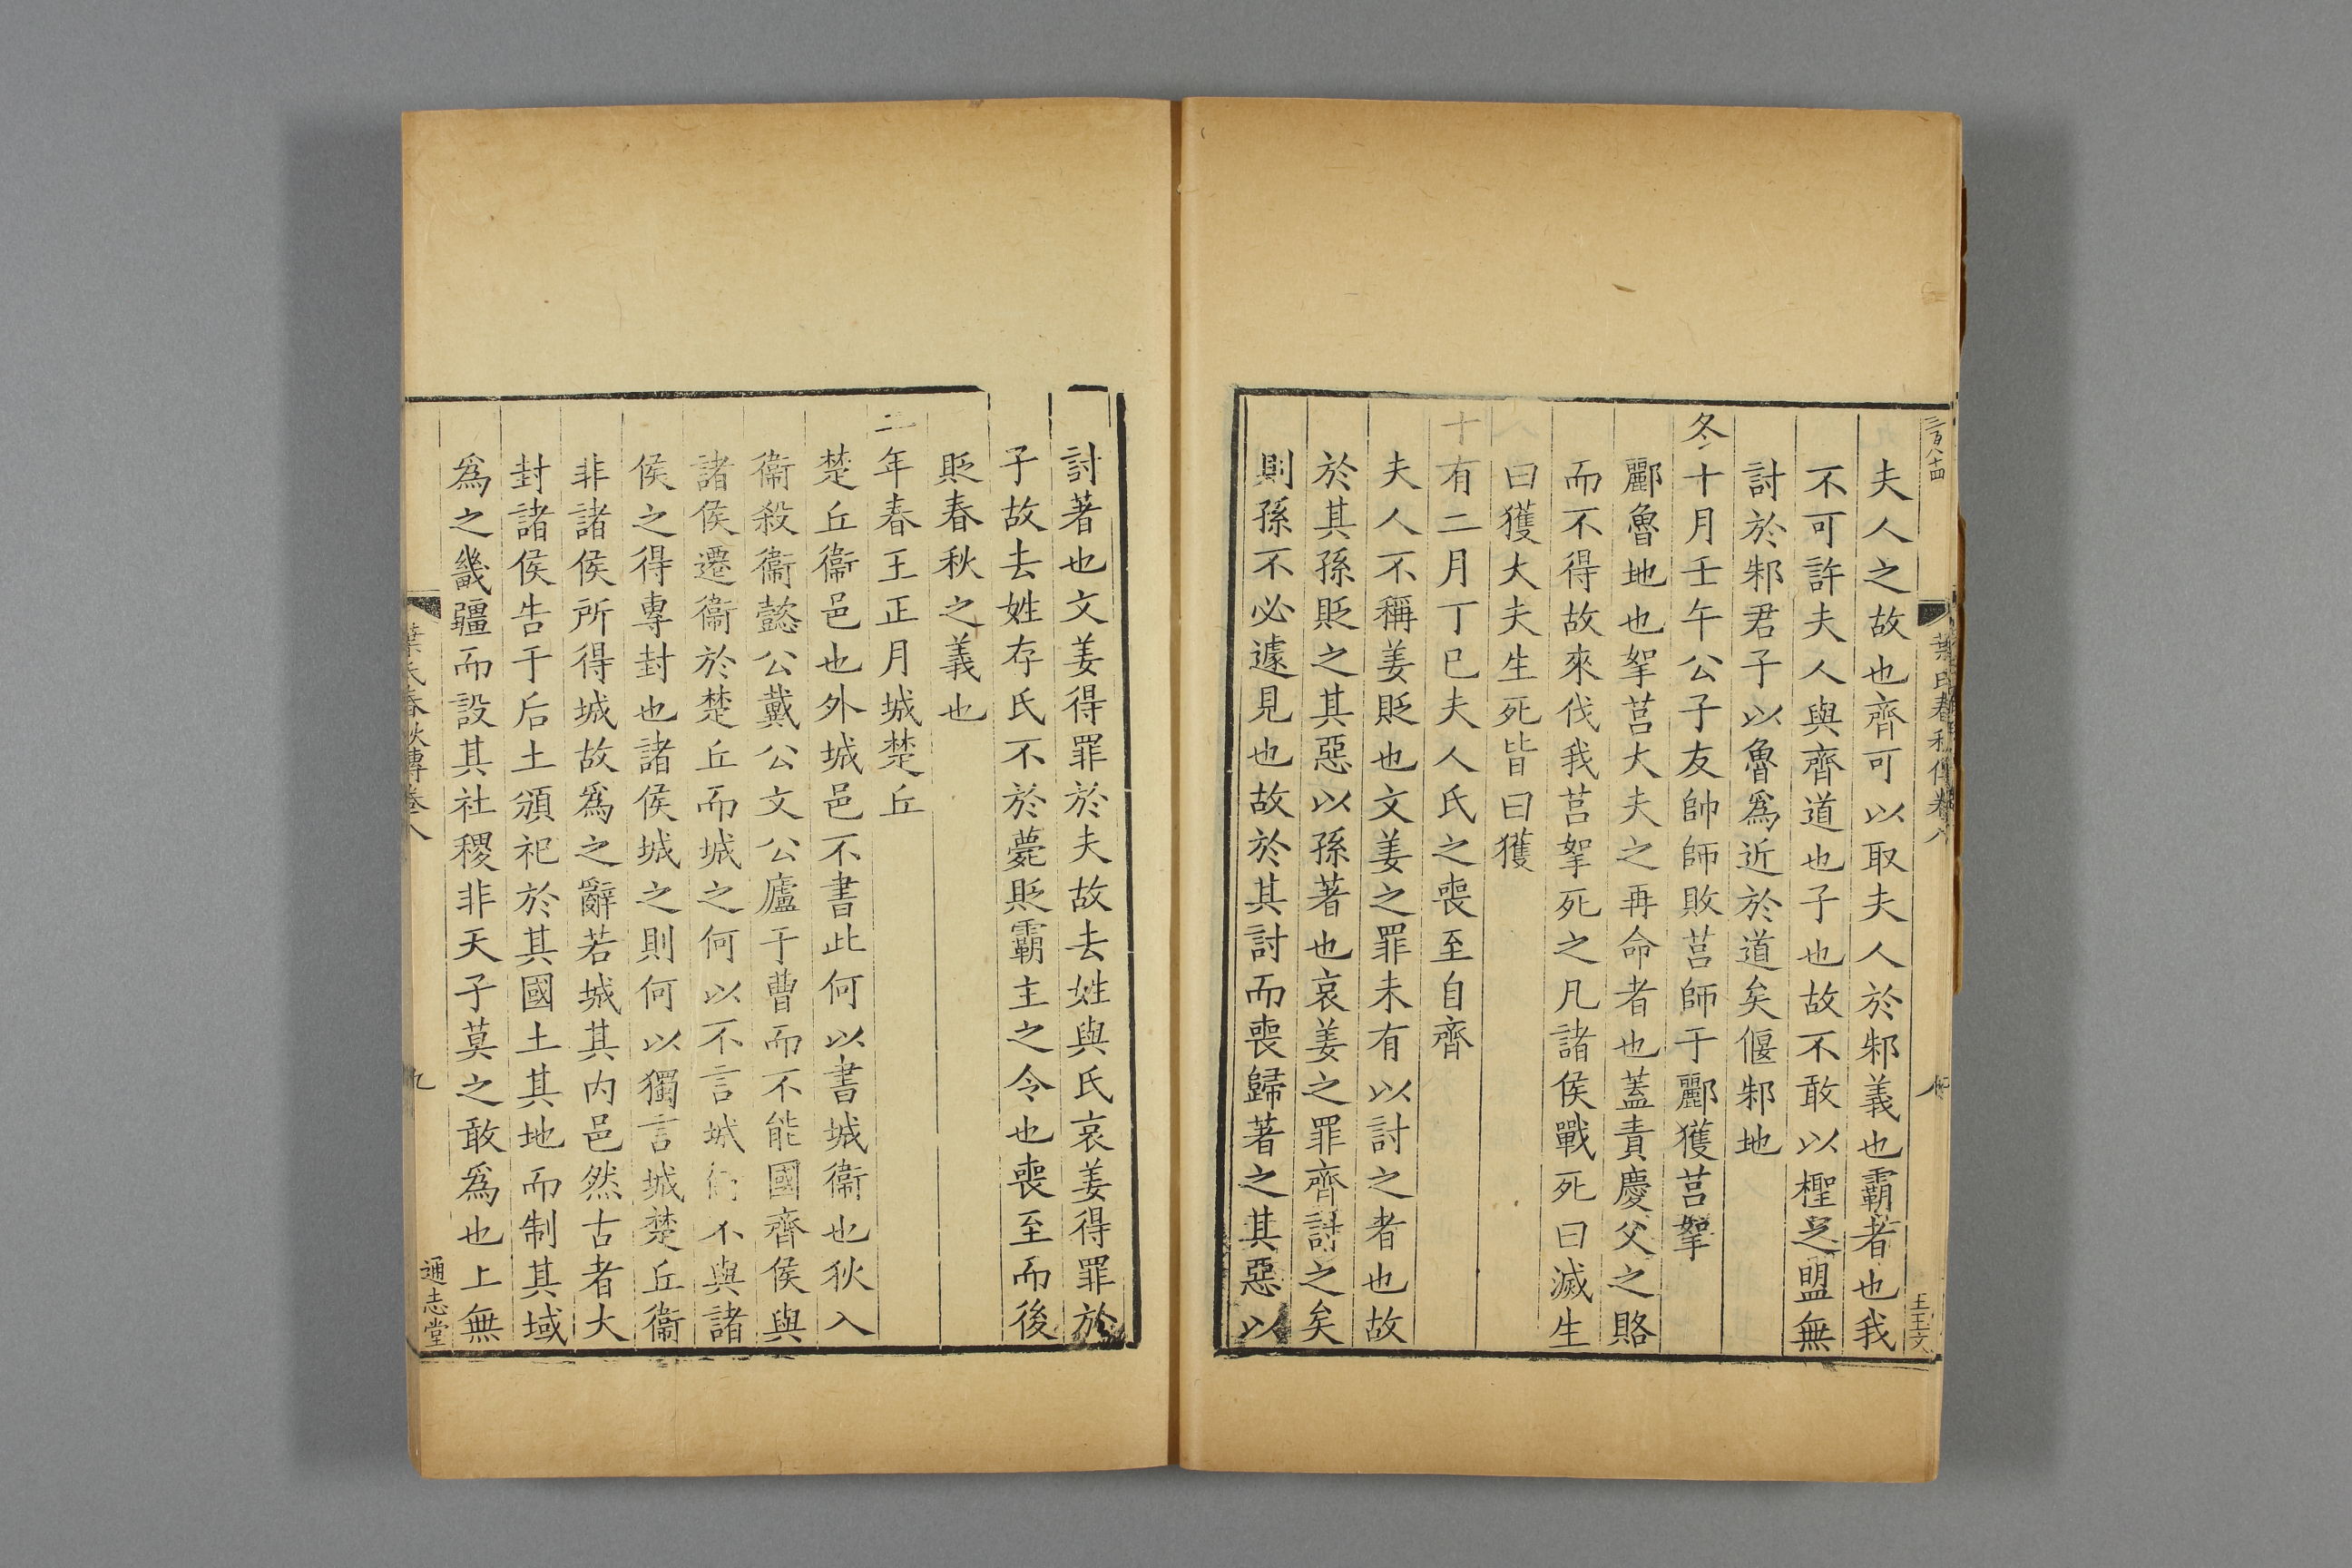 三百八十四
葉氏春秋傳卷八
八
王王文
夫人之故也齊可以取夫人於邾義也霸者也我
不可許夫人與齊道也子也故不敢以檉之盟無
討於邾君子以魯爲近於道矣偃邾地
冬十月壬午公子友帥師敗莒師于酈獲莒挐
酈魯地也挐莒大夫之再命者也蓋責慶父之賂
而不得故來伐我莒挐死之凡諸侯戰死曰滅生
曰獲大夫生死皆曰獲
十有二月丁巳夫人氏之喪至自齊
夫人不稱姜貶也文姜之罪未有以討之者也故
於其孫貶之其惡以孫著也哀姜之罪齊討之矣
則孫不必遽見也故於其討而喪歸著之其惡以
討著也文姜得罪於夫故去姓與氏哀姜得罪於
子故去姓存氏不於薨貶霸主之令也喪至而後
貶春秋之義也
二年春王正月城楚丘
楚丘衞邑也外城邑不書此何以書城衞也狄入
衞殺衞懿公戴公文公廬于曹而不能國齊侯與
諸侯遷衞於楚丘而城之何以不言城衞不與諸
侯之得專封也諸侯城之則何以獨言城楚丘衞
非諸侯所得城故爲之辭若城其内邑然古者大
封諸侯告于后土頒祀於其國土其地而制其域
爲之畿疆而設其社稷非天子莫之敢爲也上無
葉氏春秋傳卷八
九
通志堂